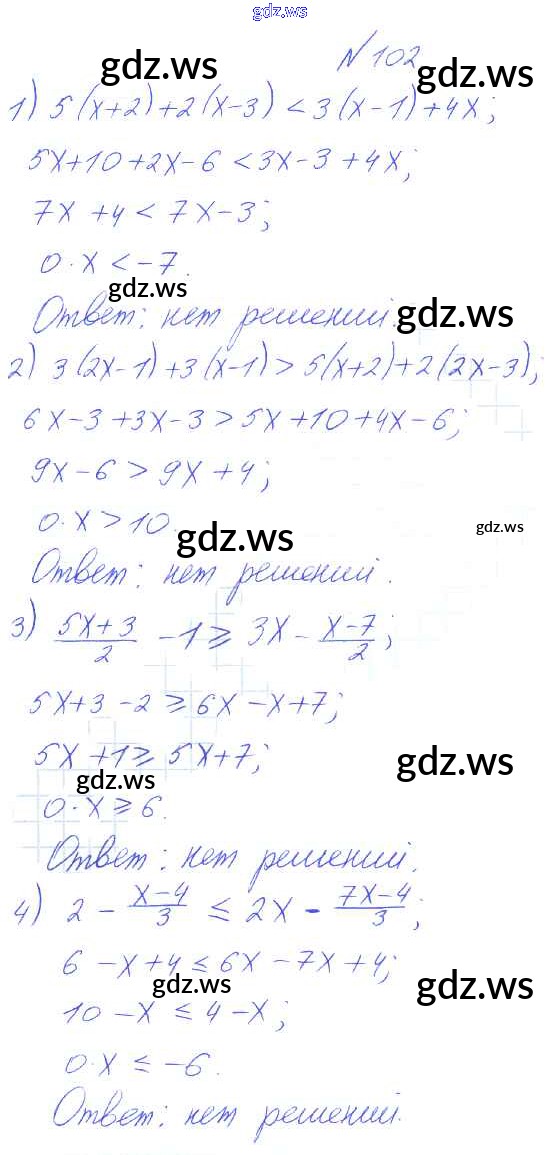 gdz.ws
№ 102
gdz.ws gdz.ws
1) 5(x+2)+2(x-3) < 3(x-1)+4x;
5x+10+2x-6 < 3x-3+4x;
7x+4 < 7x-3;
0·x < -7.
gdz.ws
Ответ: нет решений.
gdz.ws
2) 3(2x-1)+3(x-1) > 5(x+2)+2(2x-3);
6x-3+3x-3 > 5x+10+4x-6;
9x-6 > 9x+4;
0·x > 10.
gdz.ws gdz.ws
Ответ: нет решений.
3) (5x+3)/2 - 1 ≥ 3x - (x-7)/2;
5x+3-2 ≥ 6x-x+7;
5x+1 ≥ 5x+7;
gdz.ws gdz.ws
0·x ≥ 6.
Ответ: нет решений.
4) 2 - (x-4)/3 ≤ 2x - (7x-4)/3;
6-x+4 ≤ 6x-7x+4;
gdz.ws gdz.ws
10-x ≤ 4-x;
0·x ≤ -6.
Ответ: нет решений.
gdz.ws